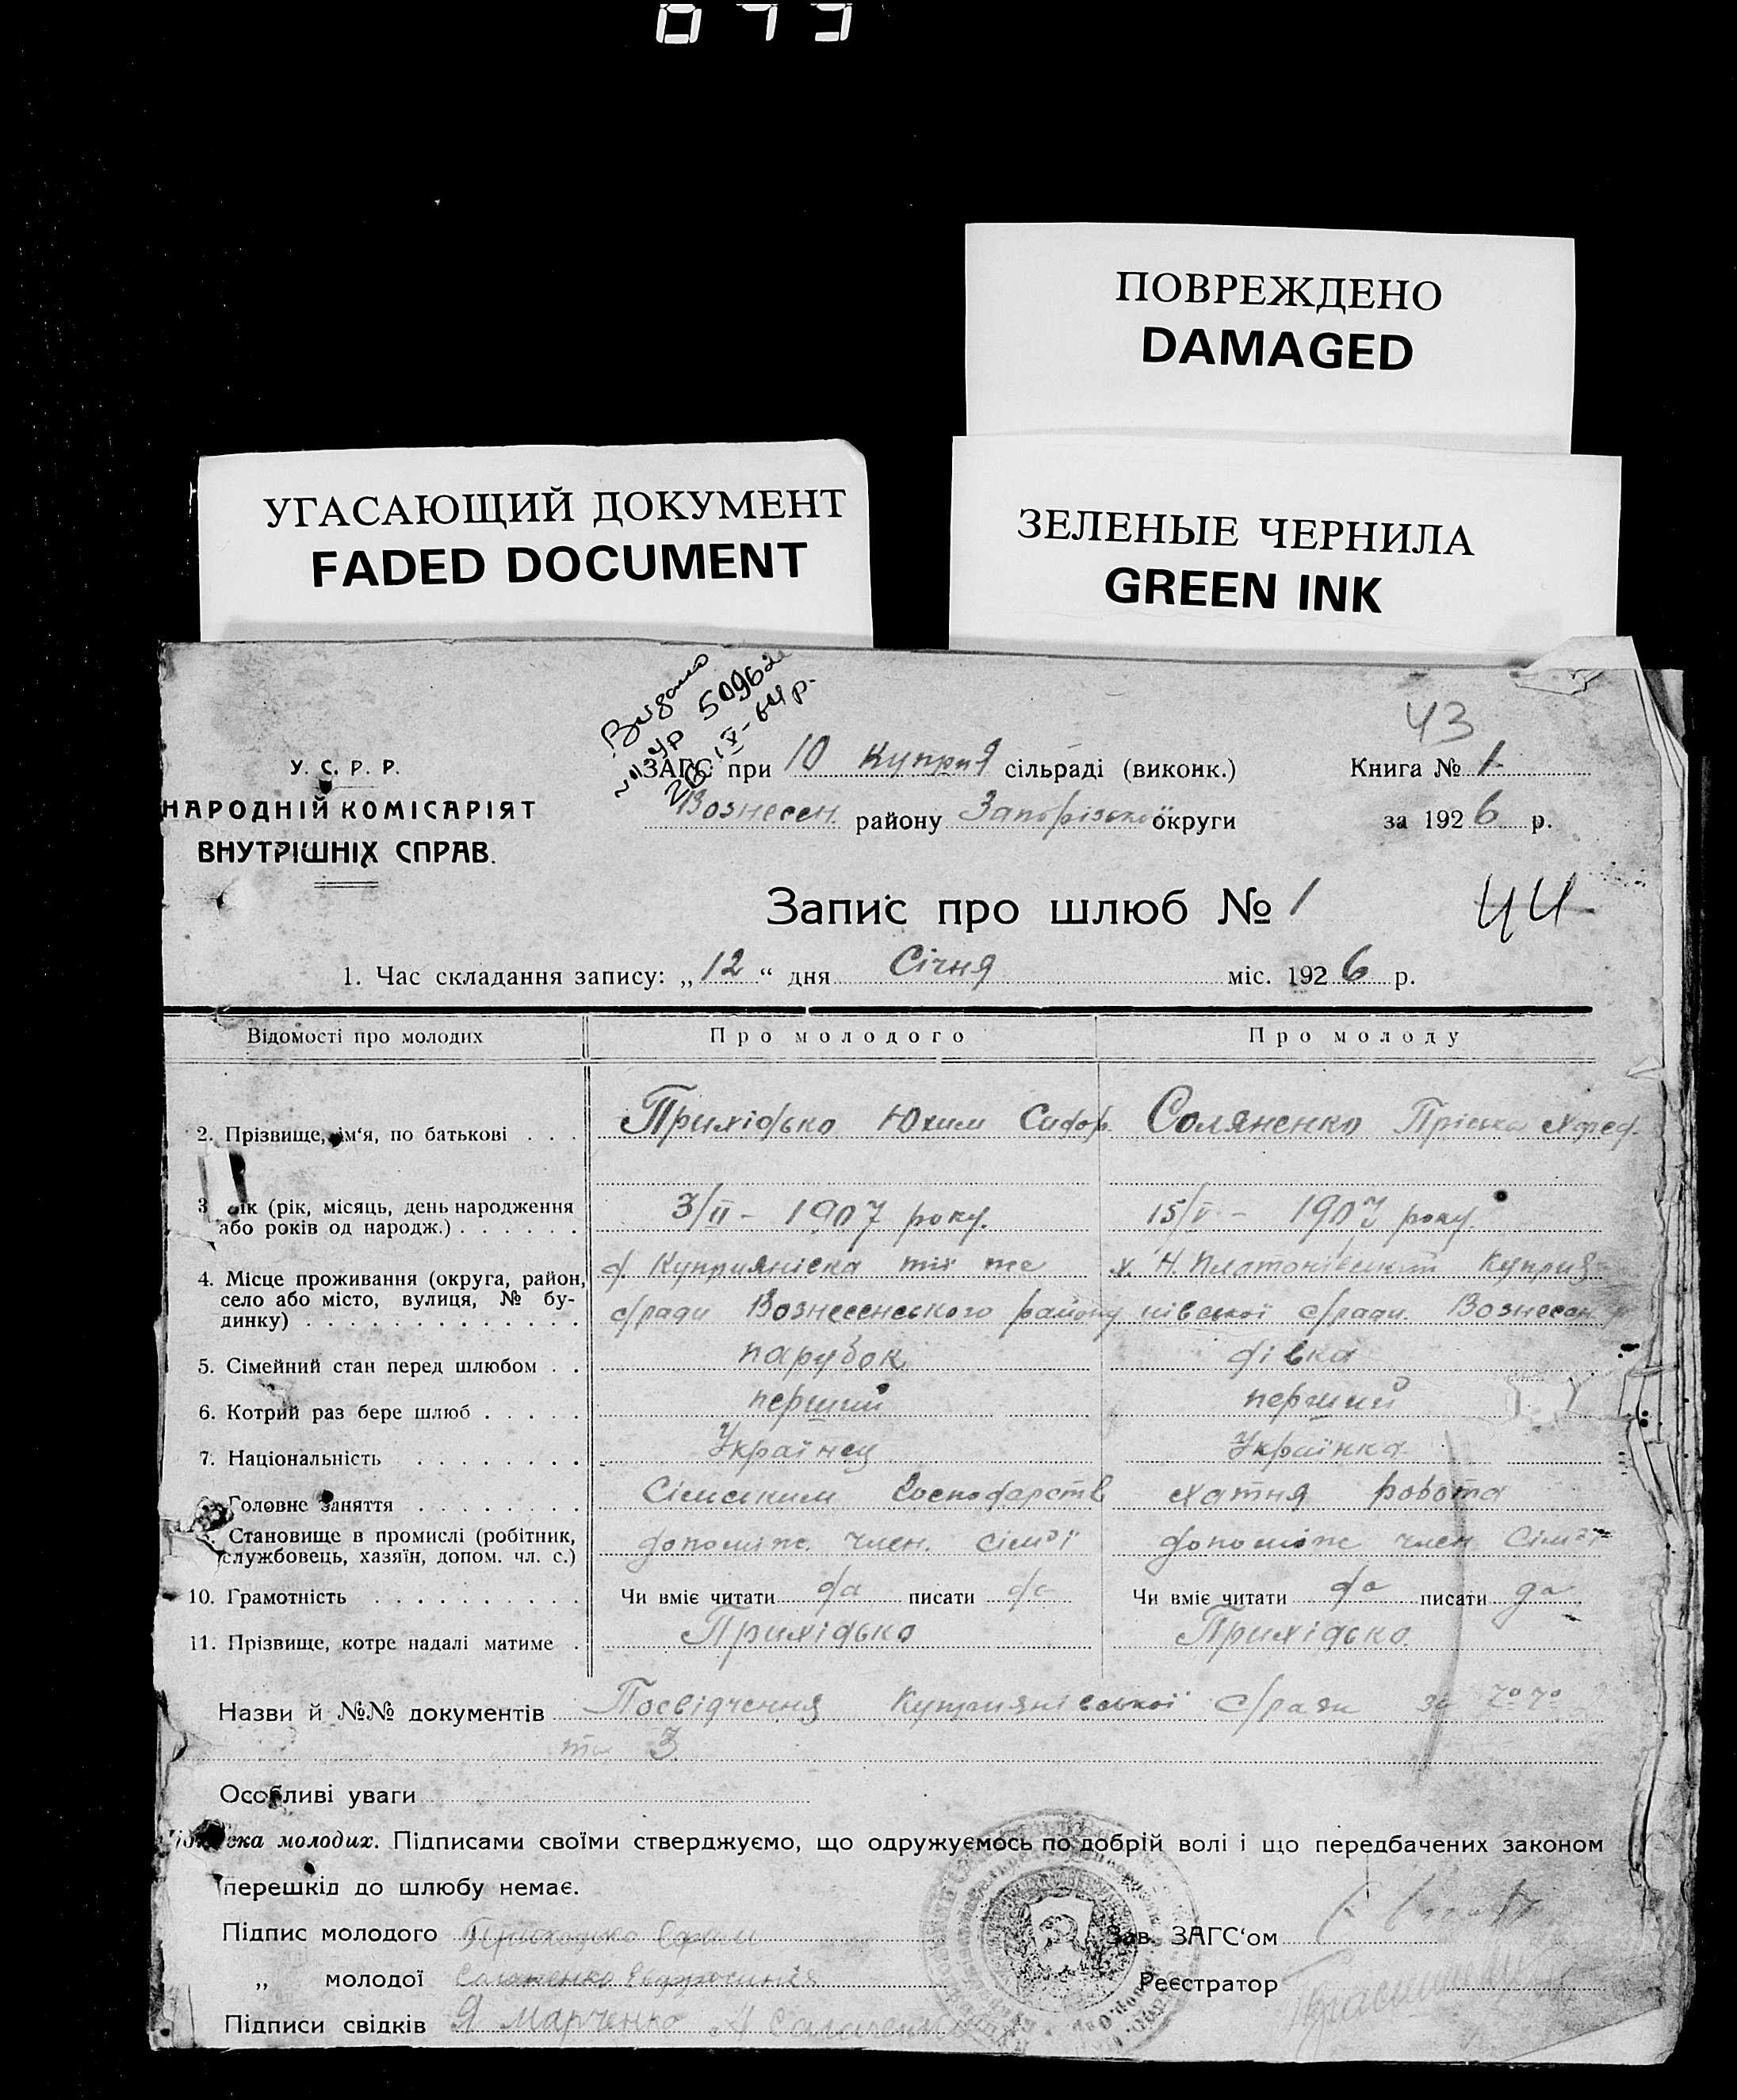 ПОВРЕЖДЕНО
DAMAGED
УГАСАЮЩИЙ ДОКУМЕНТ
FADED DOCUMENT
ЗЕЛЕНЫЕ ЧЕРНИЛА
GREEN INK
43
У. С. Р. Р.
НАРОДНІЙ КОМІСАРІЯТ
ВНУТРІШНІХ СПРАВ.
Видано
50962
ЗАГС при 10 Куприя сільраді (виконк.)
Вознесен. району Запорізької округи
Книга № 1
за 1926 р.
Запис про шлюб № 1
44
1. Час складання запису: „12“ дня Січня міс. 1926 р.
Відомості про молодих Про молодого Про молоду
2. Прізвище, ім‘я, по батькові . . . Прихідько Юхим Сидор. Соляненко Пріська
3. Вік (рік, місяць, день народження або років од народж.) . . . . . . 3/II – 1907 року. 15/V – 1907 року.
4. Місце проживання (округа, район, село або місто, вулиця, № будинку) . . . с/ради Вознесенського району х. Н. Платонівський Куприянівської с/ради. Вознесен
5. Сімейний стан перед шлюбом . . парубок дівка
6. Котрий раз бере шлюб . . . . . перший перший
7. Національність . . . . . . . . Українец Українка
8. Головне заняття . . . . . . . . Сільським Господарств хатня робота
9. Становище в промислі (робітник, службовець, хазяїн, допом. чл. с.) допоміж. член. сімʼї допоміж член Сімʼї
10. Грамотність . . . . . . . . . . Чи вміє читати да писати да Чи вміє читати да писати да
11. Прізвище, котре надалі матиме . Прихідько Прихідько.
Назви й №№ документів Посвідчення Куприянівської с/ради за
та 3
Особливі уваги
молодих. Підписами своїми стверджуємо, що одружуємось по добрій волі і що передбачених законом
перешкід до шлюбу немає.
Підпис молодого Приходько Ефим Зав. ЗАГС‘ом
„ молодої Соляненко Реєстратор
Підписи свідків Я Марченко